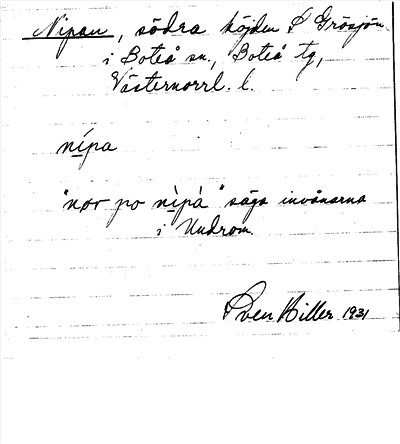 Nipan, södra höjden S Grösjön
i Boteå sn., Boteå tg,
Västernorrl. l.
nípa
"nor po nìpá" säga invånarna
i Undrom.
Sven Hiller 1931